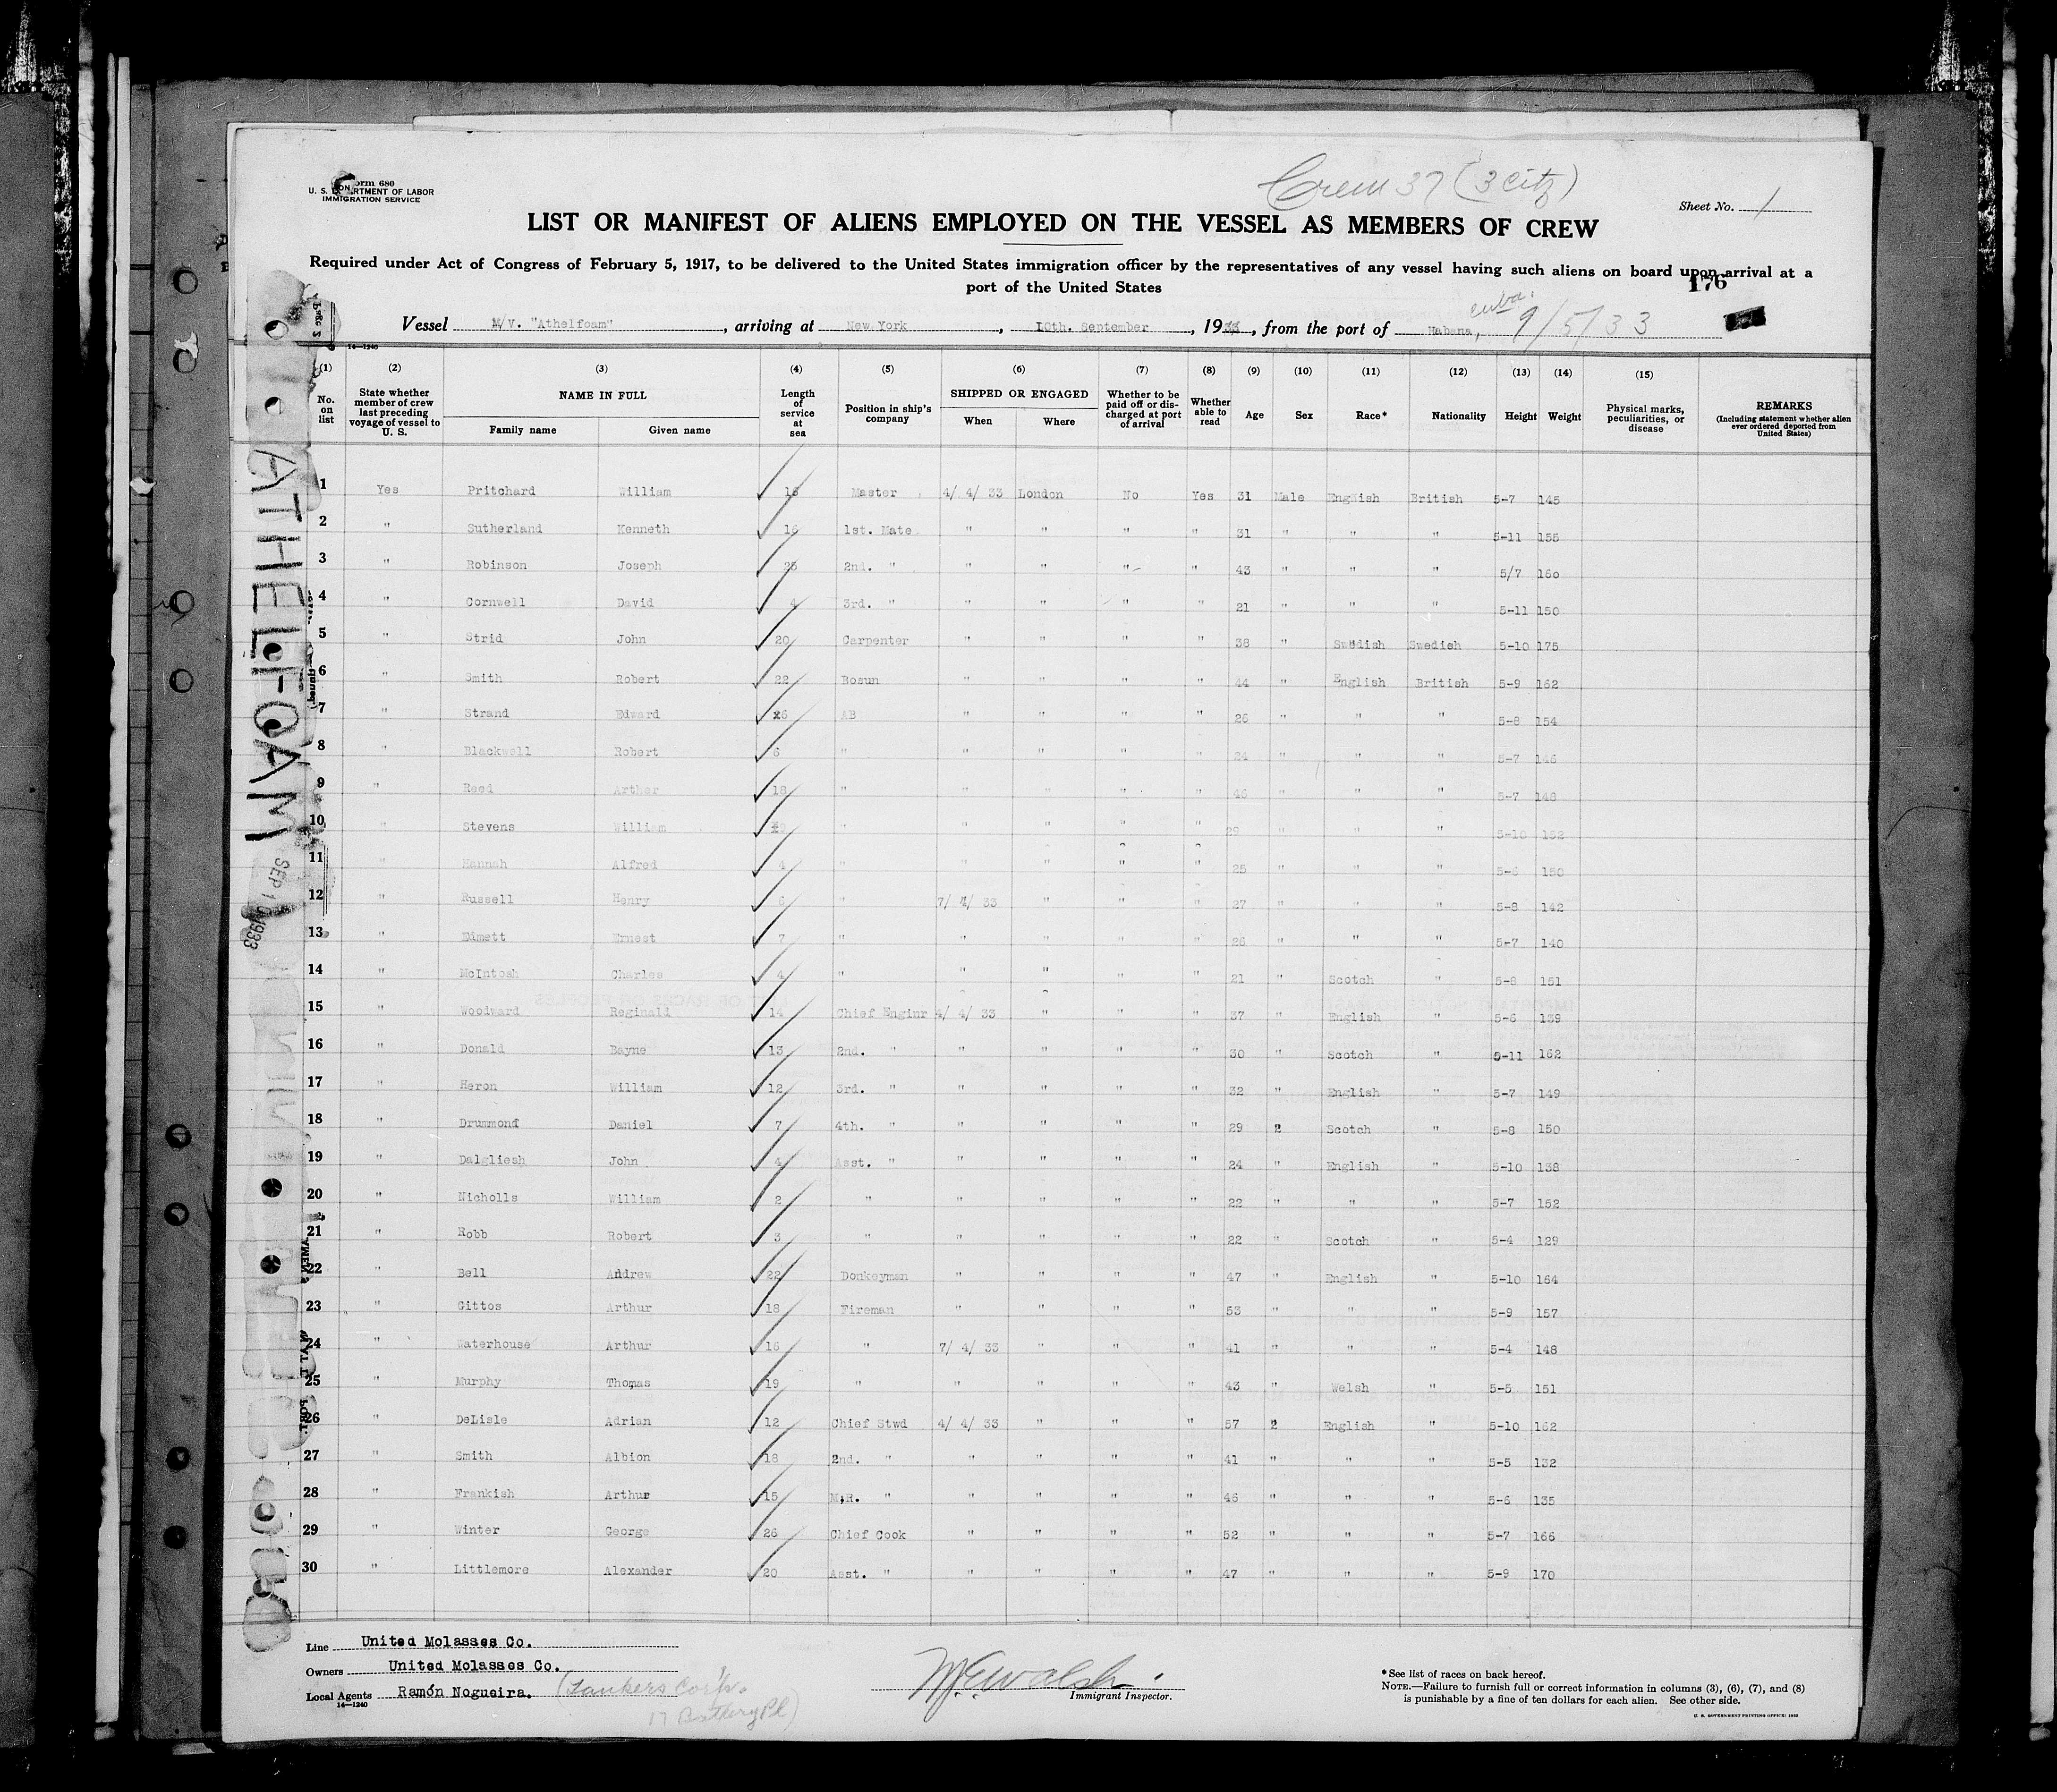 Form 680
U. S. DEPARTMENT OF LABOR
IMMIGRATION SERVICE
Crew 37 (3 citz)
Sheet No. 1
LIST OR MANIFEST OF ALIENS EMPLOYED ON THE VESSEL AS MEMBERS OF CREW
Required under Act of Congress of February 5, 1917, to be delivered to the United States immigration officer by the representatives of any vessel having such aliens on board upon arrival at a
port of the United States
176
Vessel M/V. "Athelfoam", arriving at New York, 10th. September, 1933, from the port of Habana, cuba. 9/5/33
14—1240
(1) (2) (3) (4) (5) (6) (7) (8) (9) (10) (11) (12) (13) (14) (15)
No. on list | State whether member of crew last preceding voyage of vessel to U. S. | NAME IN FULL Family name Given name | Length of service at sea | Position in ship's company | SHIPPED OR ENGAGED When Where | Whether to be paid off or discharged at port of arrival | Whether able to read | Age | Sex | Race* | Nationality | Height | Weight | Physical marks, peculiarities, or disease | REMARKS (Including statement whether alien ever ordered deported from United States)
1 Yes Pritchard William 16 Master 4/ 4/ 33 London No Yes 31 Male English British 5-7 145
2 " Sutherland Kenneth 16 1st. Mate " " " " 31 " " " 5-11 155
3 " Robinson Joseph 25 2nd. " " " " " 43 " " " 5/7 160
4 " Cornwell David 4 3rd. " " " " " 21 " " " 5-11 150
5 " Strid John 20 Carpenter " " " " 38 " Swedish Swedish 5-10 175
6 " Smith Robert 22 Bosun " " " " 44 " English British 5-9 162
7 " Strand Edward 26 AB " " " " 26 " " " 5-8 154
8 " Blackwell Robert 6 " " " " " 24 " " " 5-7 146
9 " Reed Arthur 18 " " " " " 46 " " " 5-7 148
10 " Stevens William " " " " " 29 " " " 5-10 162
11 " Hannah Alfred 4 " " " " " 25 " " " 5-6 150
12 " Russell Henry 6 " 7/ 4/ 33 " " " 27 " " " 5-8 142
13 " Edmett Ernest 7 " " " " " 26 " " " 5-7 140
14 " McIntosh Charles 4 " " " " " 21 " Scotch " 5-8 151
15 " Woodward Reginald 14 Chief Enginr 4/ 4/ 33 " " " 37 " English " 5-6 139
16 " Donald Bayne 13 2nd. " " " " " 30 " Scotch " 5-11 162
17 " Heron William 12 3rd. " " " " " 32 " English " 5-7 149
18 " Drummond Daniel 7 4th. " " " " " 29 2 Scotch " 5-8 150
19 " Dalgliesh John 4 Asst. " " " " " 24 " English " 5-10 138
20 " Nicholls William 2 " " " " " 22 " " " 5-7 152
21 " Robb Robert 3 " " " " " 22 " Scotch " 5-4 129
22 " Bell Andrew 22 Donkeyman " " " " 47 " English " 5-10 164
23 " Gittos Arthur 18 Fireman " " " " 53 " " " 5-9 157
24 " Waterhouse Arthur 16 " 7/ 4/ 33 " " " 41 " " " 5-4 148
25 " Murphy Thomas 19 " " " " " 43 " Welsh " 5-5 151
26 " DeLisle Adrian 12 Chief Stwd 4/ 4/ 33 " " " 57 2 English " 5-10 162
27 " Smith Albion 18 2nd. " " " " " 41 " " " 5-5 132
28 " Frankish Arthur 15 M.R. " " " " " 46 " " " 5-6 135
29 " Winter George 26 Chief Cook " " " " 52 " " " 5-7 166
30 " Littlemore Alexander 20 Asst. " " " " " 47 " " " 5-9 170
ATHELFOAM
SEP 10 1933
Line United Molasses Co.
Owners United Molasses Co.
Local Agents Ramón Nogueira. (Tankers Corp.
17 Battery Pl)
14—1240
W.E. Walsh
Immigrant Inspector.
* See list of races on back hereof.
NOTE.—Failure to furnish full or correct information in columns (3), (6), (7), and (8)
is punishable by a fine of ten dollars for each alien. See other side.
U. S. GOVERNMENT PRINTING OFFICE: 1932